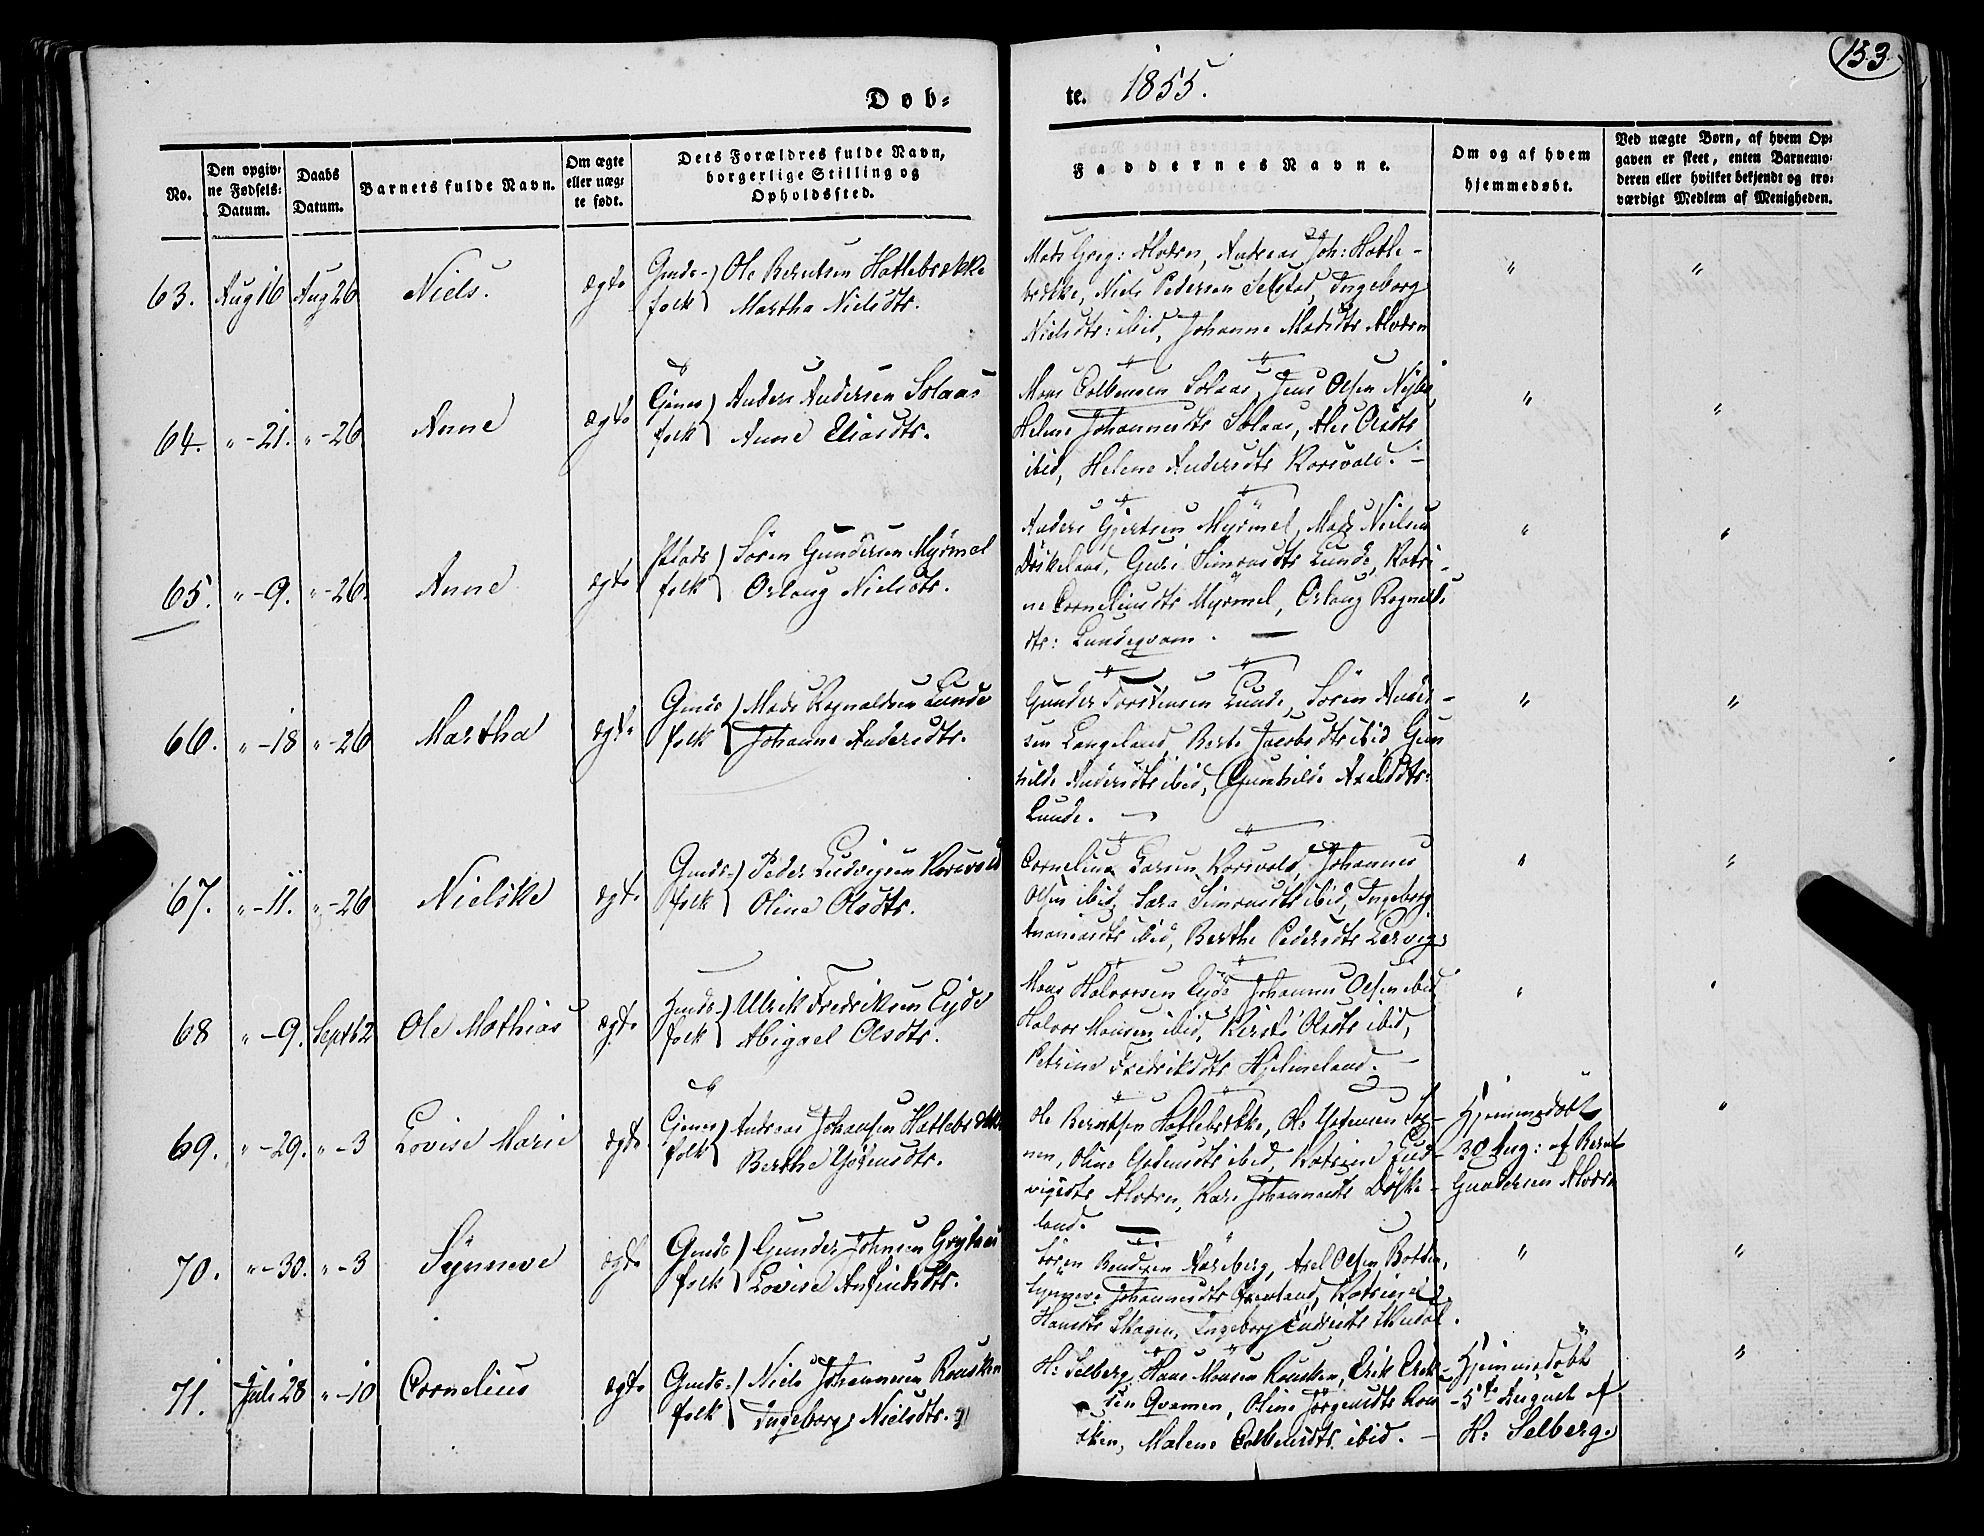 153
Døb-
te. 1855.
No.
Den opgiv-
ne Fødsels-
Datum.
Daabs
Datum.
Barnets fulde Navn.
Om ægte
eller uæg-
te født.
Dets Forældres fulde Navn,
borgerlige Stilling og
Opholdssted.
Faddernes Navne.
Om og af hvem
hjemmedøbt.
Ved uægte Børn, af hvem Op-
gaven er skeet, enten Barnemo-
deren eller hvilket bekjendt og tro-
værdigt Medlem af Menigheden.
63. Aug 16 Aug 26 Niels. ægte
Gmds-folk Ole Berntsen Hatlebrække
Martha Nielsdtr.
Mads Greg: Alværen, Andreas Joh: Hatle-
brække, Niels Pedersen Ingeborg
Nielsdtr: ibid, Johanne Madsdtr Alværen
" "
64. " -21. " -26 Anne ægte
folk Anders Andersen Solaas
Anne Eliasdtr.
Mons Colbensen Solaas, Jens Olsen Nybø,
Helene Johannesdtr Solaas, Olsdtr
ibid, Helene Andersdtr Korsvold. -
" "
65. " -9. " -26. Anne ægte
Plads folk Søren Gundersen Myrmel
Orlaug Nielsdtr.
Anders Gjertsen Myrmel, Mads Nielsen
Døskeland, Guri Simonsdtr Lunde, Katri-
ne Corneliusdtr Myrmel, Orlaug Ragnalds
dtr: Lundeqvam. -
" "
66. " -18 " -26 Martha ægte
Gmds folk Mads Ragnaldsen Lunde
Johanne Andersdtr.
Gunder Torstensen Lunde, Søren Anders-
sen Langeland, Berte Jacobsdtr ibid, Gun
hilde Andersdtr ibid, Gunhilde Axelsdtr:
Lunde. -
" "
67. " -11. " -26 Nielske ægte
Gmds-folk Peder Ludvigsen Korsvold
Oline Olsdtr.
Cornelius Larsen Korsvold, Johannes
Olsen ibid, Sara Simonsdtr ibid, Ingeborg
Ananiasdtr ibid, Berthe Pedersdtr
" "
68 " -9. Septb 2 Ole Mathias ægte
folk Ulrik Fredriksen Eyde
Abigael Olsdtr.
Mons Halvorsen Eyde Johannes Olsen ibid,
Halvor Monsen ibid, Kirsti Olsdtr ibid,
Petrine Fredriksdtr Hjelmeland. -
" "
69. " -29. " -3 Lovise Marie ægte
folk Andreas Johansen Hatlebrække
Berthe
Ole Berntsen Hatlebrække, Ole
Oline ibid, Katrine Lud-
vigsdtr Alværen, Kari Johannesdtr Døske-
land.
Hjemmedøbt
30 Aug: af Bernt
Gundersen Alværen
"
70. " -30. " -3 Synneve ægte
Gmds folk Gunder Johnsen
Lovise Ansteensdtr.
Søren Bendixen Aarberg, Axel Olsen Botten,
Synneve Johannesdtr Katrine
Hansdtr Skagen, Ingeborg
" "
71. Juli 28 " -10 Cornelius ægte
Gmds-folk Niels Johannesen Rousken
Ingeborg Nielsdtr.
H: Selberg, Hans Monsen Rousken, Erik Erik-
sen Qvamen, Oline Jørgensdtr Rou
sken, Malene Colbensdtr. ibid. -
Hjemmedøbt
-5te August af
H: Selberg.
"